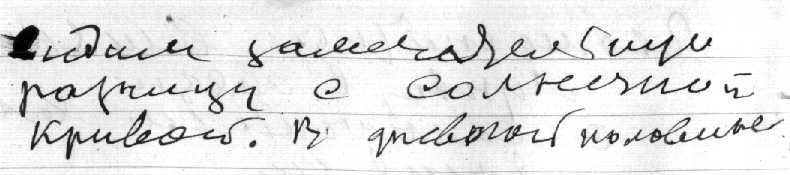 видим замечательную
разницу с солнечной
кривой. В дневной половине